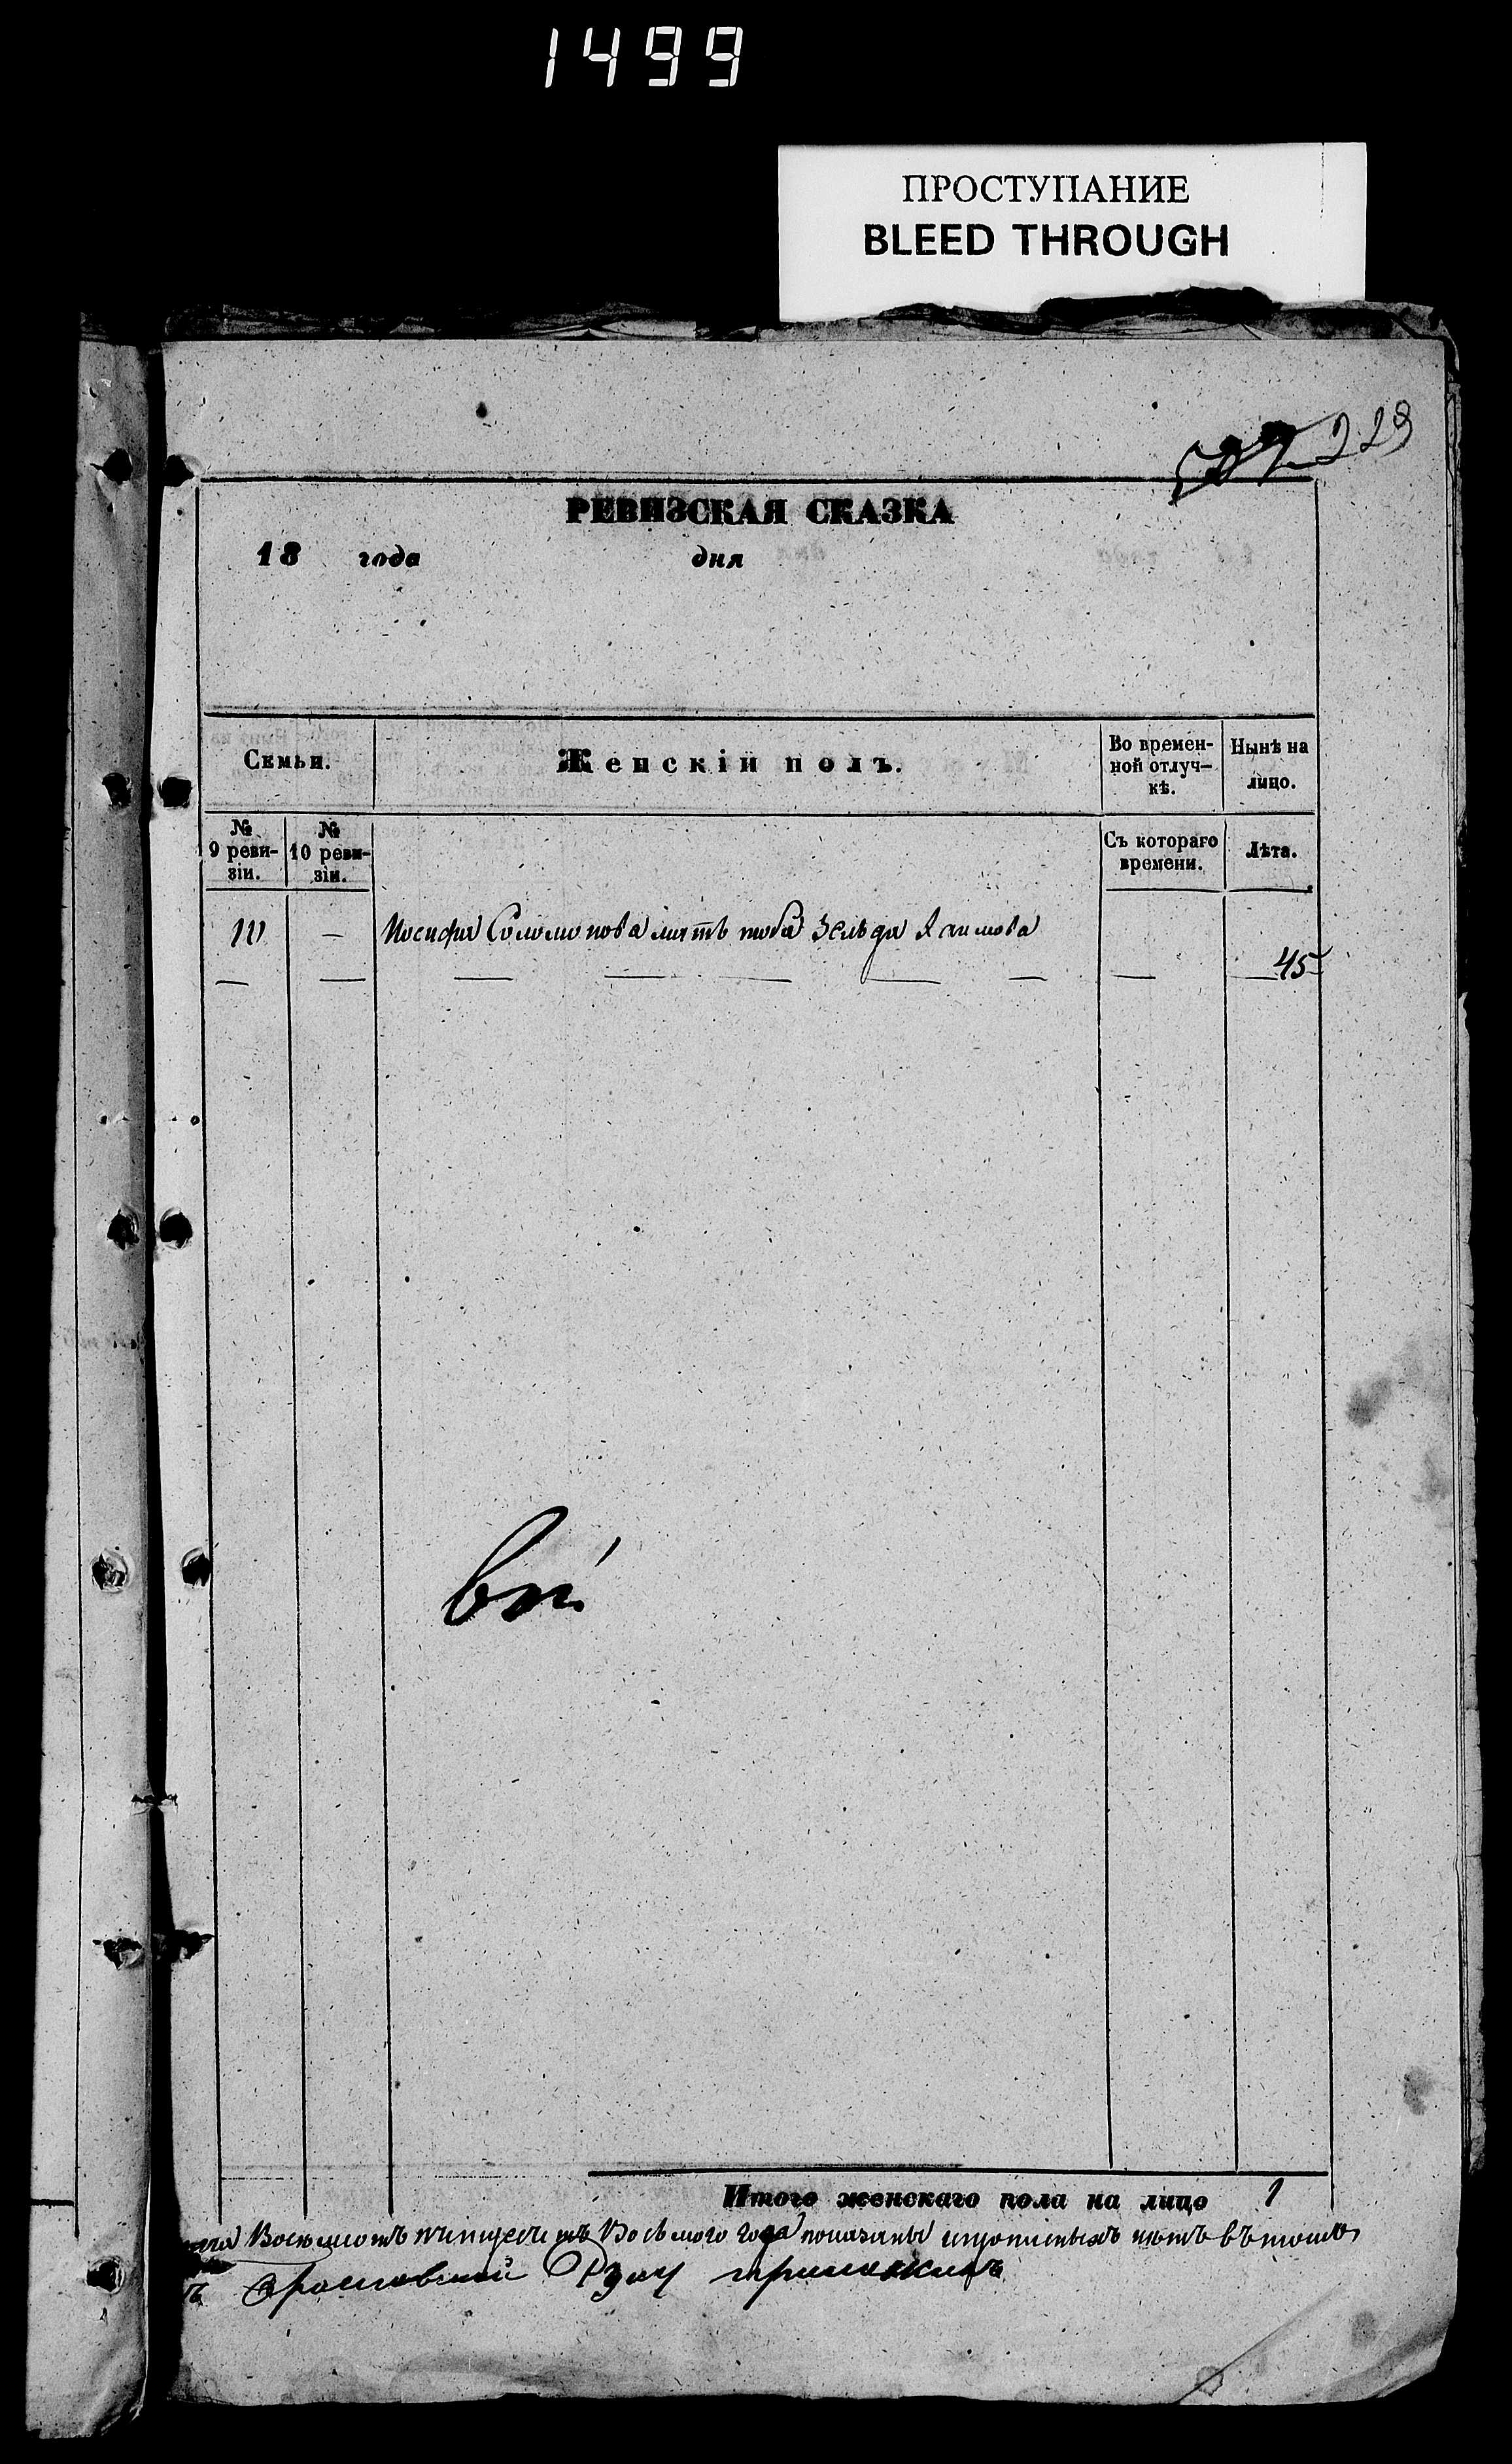 1499
ПРОСТУПАНИЕ
BLEED THROUGH
229
РЕВИЗСКАЯ СКАЗКА
18 года дня
Семьи. Женскій полъ. Во времен-ной отлуч-кѣ. Нынѣ на лицо.
№ 9 реви-зіи. № 10 реви-зіи. Съ котораго времени. Лѣта.
— Иосифа Соломонова мать Зельда Хаимова
— — — — — — — — 45
Итого женскаго пола на лицо 1
Восемьсотъ пятьдесятъ Восьмого года показаны нѣтъ въ томъ